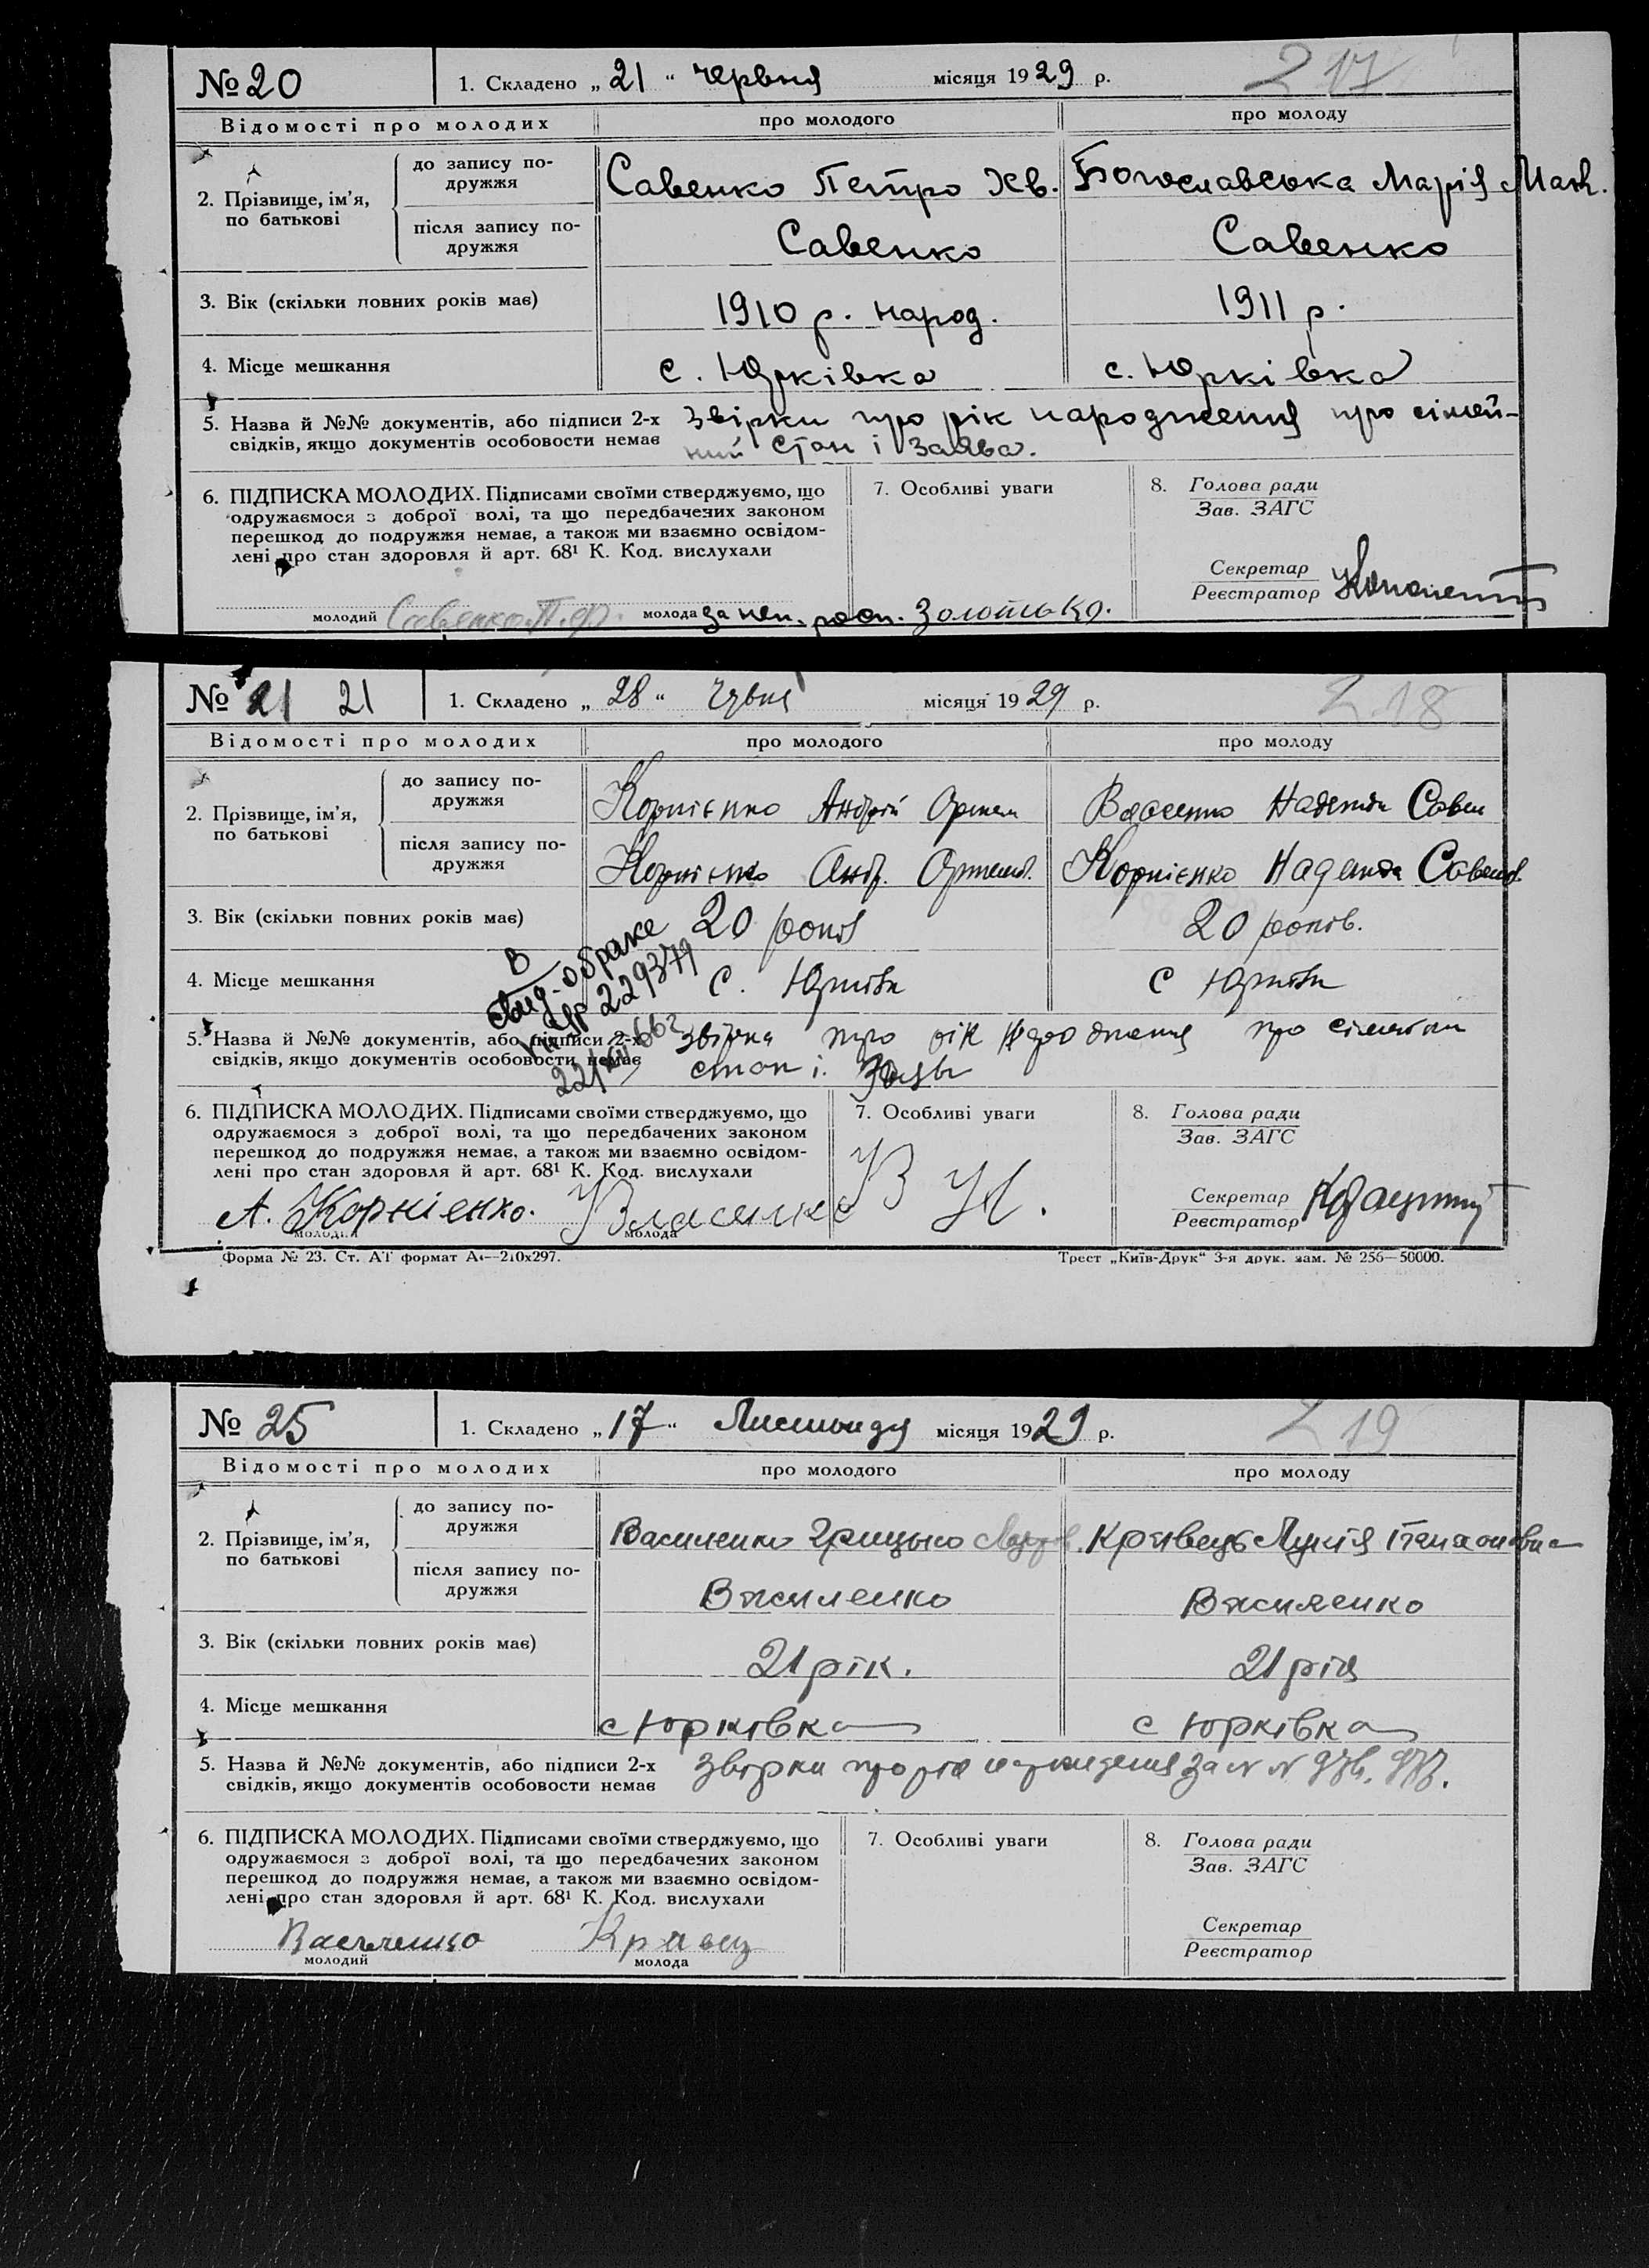 № 20 1. Складено „ 21 “ червня місяця 1929 р. 217
Відомості про молодих про молодого про молоду
2. Прізвище, ім’я, по батькові
до запису подружжя Савенко Петро Хв. Богославська Марія
після запису подружжя Савенко Савенко
3. Вік (скільки повних років має) 1910 р. народ. 1911 р.
4. Місце мешкання с. Юрківка с. Юрківка
5. Назва й №№ документів, або підписи 2-х звірки про рік народження про сімей-
свідків, якщо документів особовости немає ний стан і заява.
6. ПІДПИСКА МОЛОДИХ. Підписами своїми стверджуємо, що
одружаємося з доброї волі, та що передбачених законом
перешкод до подружжя немає, а також ми взаємно освідом-
лені про стан здоровля й арт. 68¹ К. Код. вислухали
молодий Савенко П. Ф. молода за неп. росп. Золотько.
7. Особливі уваги
8. Голова ради
Зав. ЗАГС
Секретар
Реєстратор
№ 21 21 1. Складено „ 28 “ червня місяця 1929 р. 218
Відомості про молодих про молодого про молоду
2. Прізвище, ім’я, по батькові
до запису подружжя Корнієнко Андрій Артем Власенко Надежда Савел
після запису подружжя Корнієнко Андр. Артемов. Корнієнко Надежда Савелов.
3. Вік (скільки повних років має) 20 років 20 років.
4. Місце мешкання с. Юрківка с Юрківка
В
свид. о браке
229379
5. Назва й №№ документів, або підписи 2-х звірка про рік народження про сімейний
свідків, якщо документів особовости немає стан і. Заява
6. ПІДПИСКА МОЛОДИХ. Підписами своїми стверджуємо, що
одружаємося з доброї волі, та що передбачених законом
перешкод до подружжя немає, а також ми взаємно освідом-
лені про стан здоровля й арт. 68¹ К. Код. вислухали
А. Корніенко. Власенко
молодий молода
7. Особливі уваги
8. Голова ради
Зав. ЗАГС
Секретар
Реєстратор
Форма № 23. Ст. АТ формат А4—210х297. Трест „Київ-Друк“ 3-я друк. зам. № 256—50000.
№ 25 1. Складено „ 17 “ Листопаду місяця 1929 р. 219
Відомості про молодих про молодого про молоду
2. Прізвище, ім’я, по батькові
до запису подружжя Василенко Грицько Кравець Лукія Панасовна
після запису подружжя Василенко Василенко
3. Вік (скільки повних років має) 21 рік. 21 рік
4. Місце мешкання с Юрківка с Юрківка
5. Назва й №№ документів, або підписи 2-х Звірки про рік народження за
свідків, якщо документів особовости немає
6. ПІДПИСКА МОЛОДИХ. Підписами своїми стверджуємо, що
одружаємося з доброї волі, та що передбачених законом
перешкод до подружжя немає, а також ми взаємно освідом-
лені про стан здоровля й арт. 68¹ К. Код. вислухали
Василенко Кравец
молодий молода
7. Особливі уваги
8. Голова ради
Зав. ЗАГС
Секретар
Реєстратор